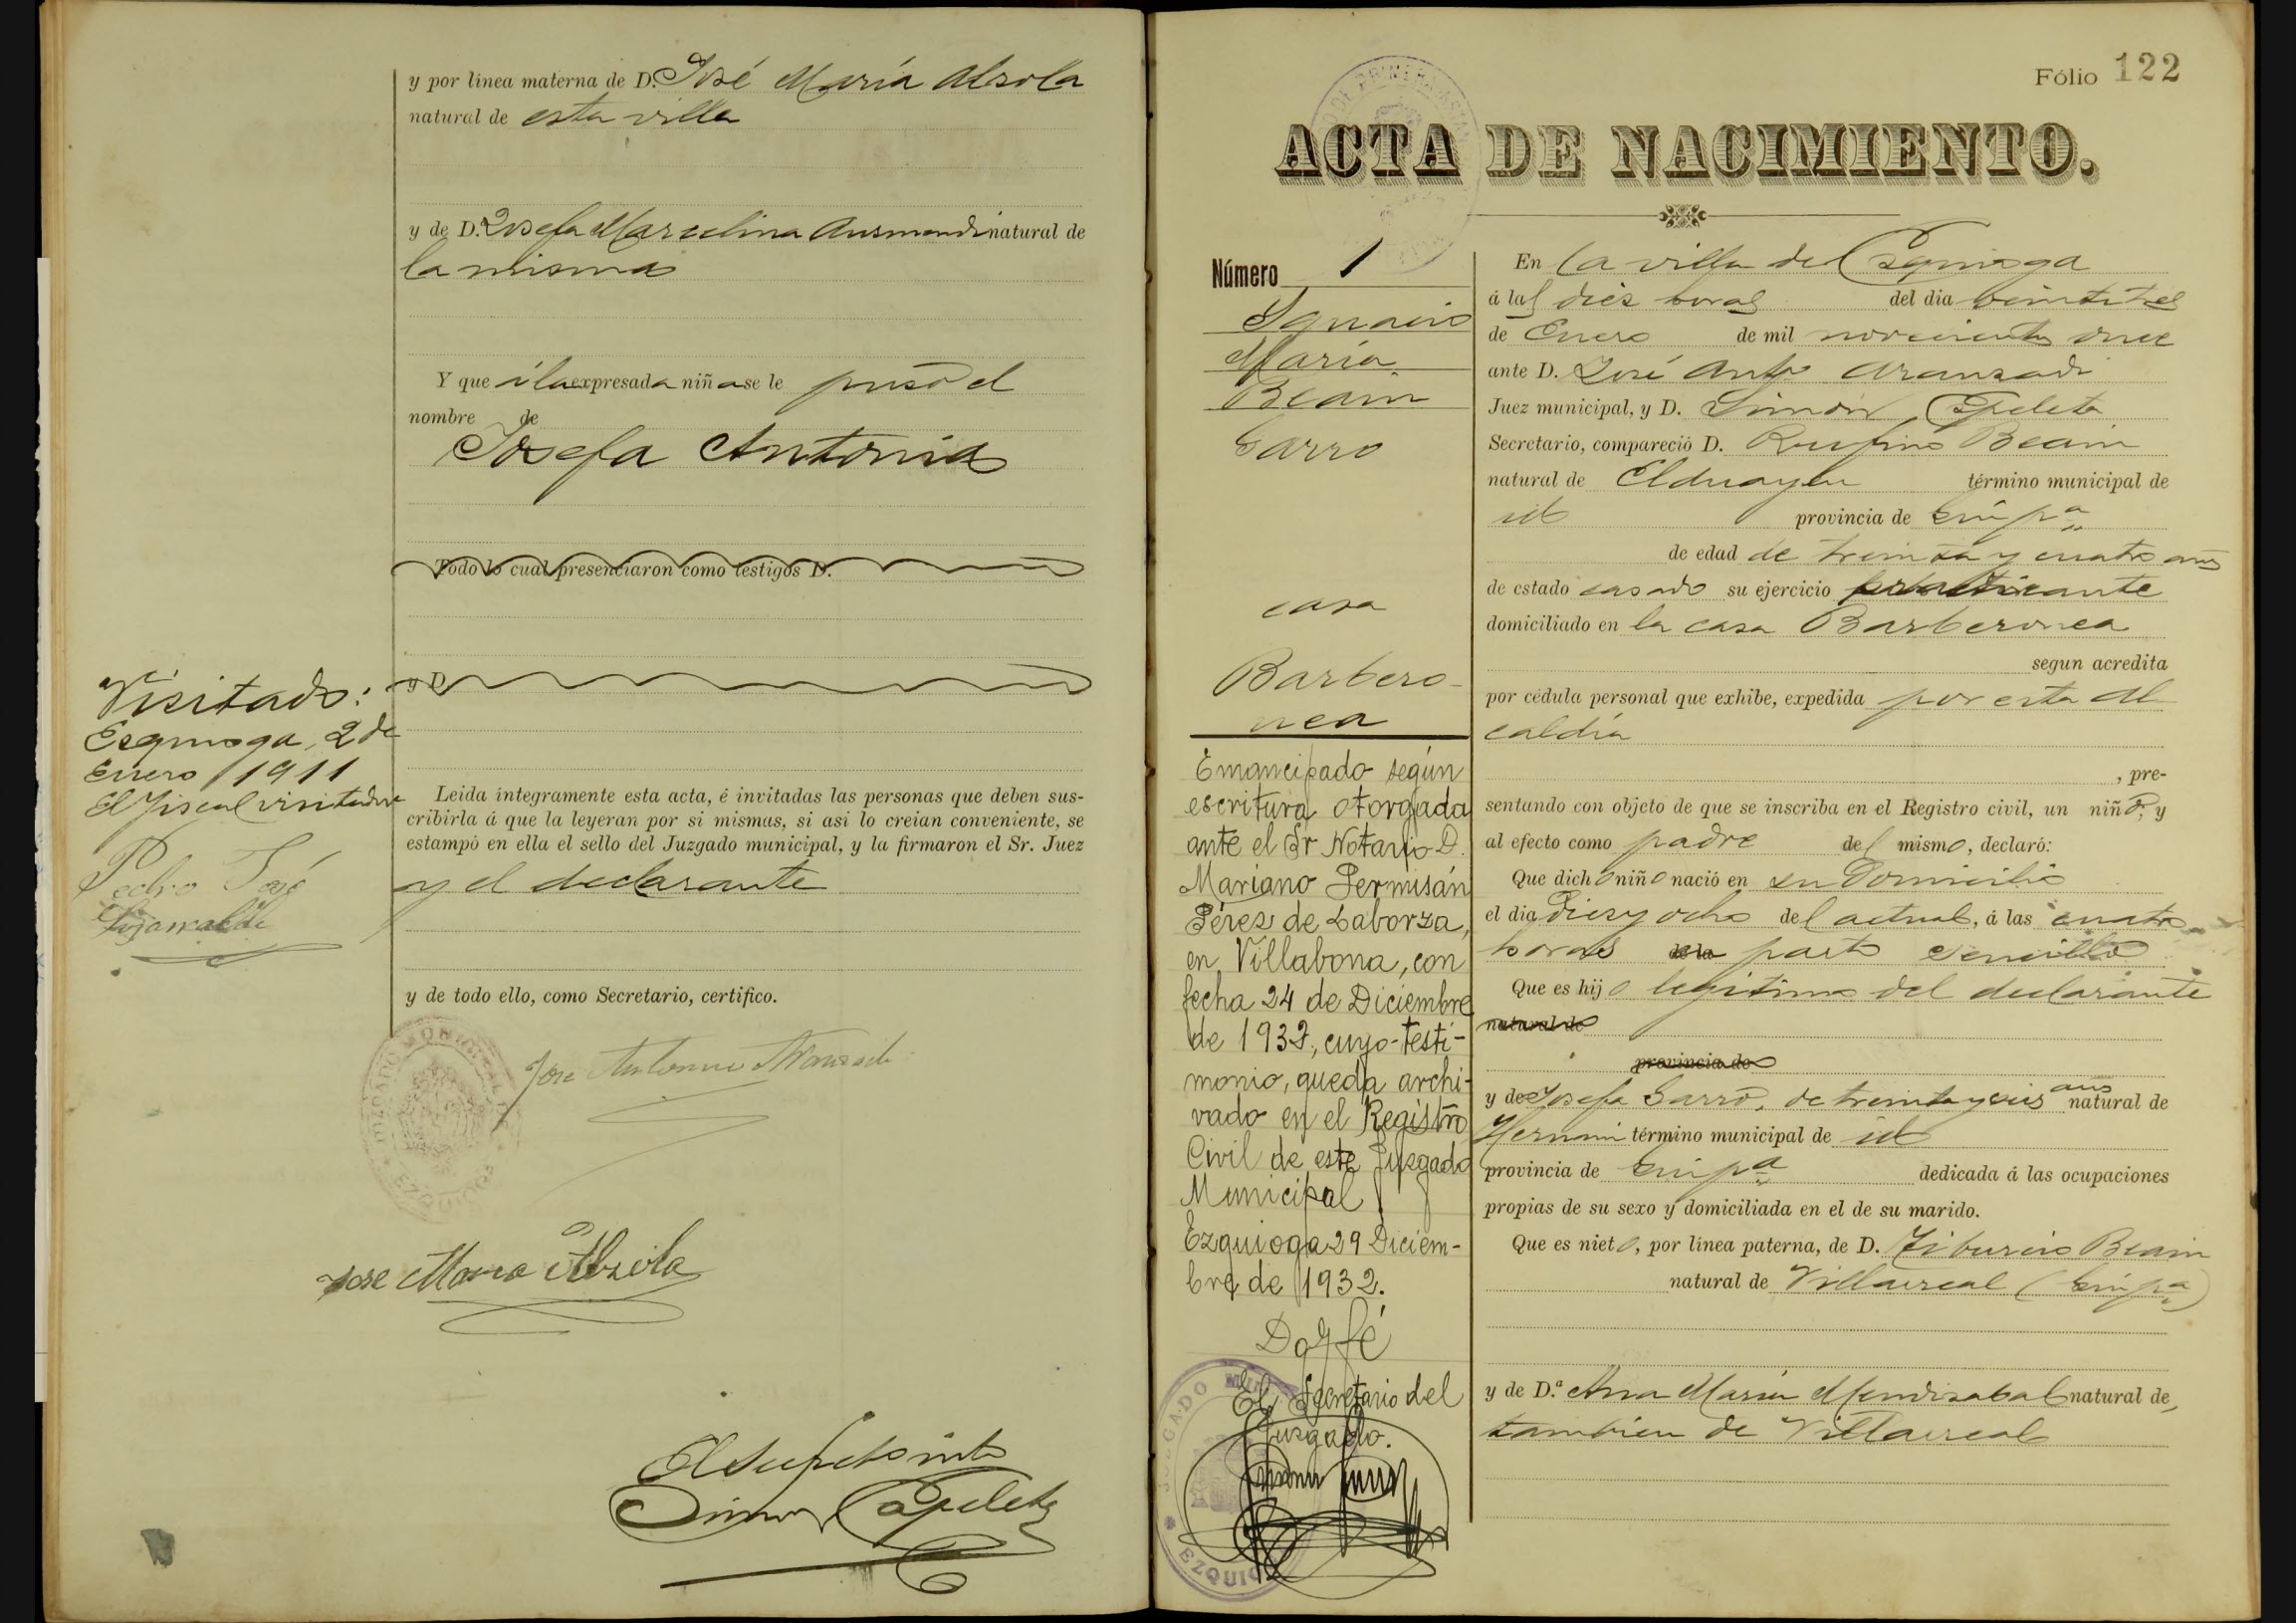 y por línea materna de D. José María Alzola
natural de esta villa
y de D.ª Josefa Marcelina Ausmendi natural de
la misma
Y que á la expresada niña se le puso el
nombre de
Josefa Antonia
Todo lo cual presenciaron como testigos D.
y D.
Visitado:
Ezquioga, 2 de
Enero 1911
El Fiscal visitador
Pedro José
Leida íntegramente esta acta, é invitadas las personas que deben sus-
cribirla á que la leyeran por si mismas, si asi lo creian conveniente, se
estampó en ella el sello del Juzgado municipal, y la firmaron el Sr. Juez
y el declarante
y de todo ello, como Secretario, certifico.
JUZGADO MUNICIPAL
EZQUIOGA
José Antonio Aranzadi
José María Alzola
Simon Ezpeleta
Fólio 122
ACTA DE NACIMIENTO.
Número 1
Ignacio
María
Beain
Garro
casa
Barbero-
nea
Emancipado según
escritura otorgada
ante el Sr Notario D.
Mariano Permisán
Pérez de Laborza,
en Villabona, con
fecha 24 de Diciembre
de 1932, cuyo testi-
monio, queda archi-
vado en el Registro
Civil de este Juzgado
Municipal
Ezquioga 29 Diciem-
bre de 1932.
Doy fé
El Secretario del
Juzgado.
JUZGADO MUN
EZQUIO
En la villa de Ezquioga
á las diez horas del dia veintitres
de Enero de mil novecientos once
ante D. José Antº Aranzadi
Juez municipal, y D. Simón Ezpeleta
Secretario, compareció D. Rufino Beain
natural de Elduayen término municipal de
id provincia de Guipª
de edad de treinta y cuatro años
de estado casado su ejercicio practicante
domiciliado en la casa Barberonea
segun acredita
por cédula personal que exhibe, expedida por esta Al-
caldía
, pre-
sentando con objeto de que se inscriba en el Registro civil, un niño; y
al efecto como padre del mismo, declaró:
Que dicho niño nació en su Domicilio
el dia Diez y ocho del actual, á las cuatro
horas de la parto sencillo
Que es hijo legítimo del declarante
natural de
provincia de
y de Josefa Garro, de treinta y seis años natural de
Hernani término municipal de id
provincia de Guipª dedicada á las ocupaciones
propias de su sexo y domiciliada en el de su marido.
Que es nieto, por línea paterna, de D. Tiburcio Beain
natural de Villarreal (Guipª)
y de D.ª Ana María Mendizabal natural de
tambien de Villarreal